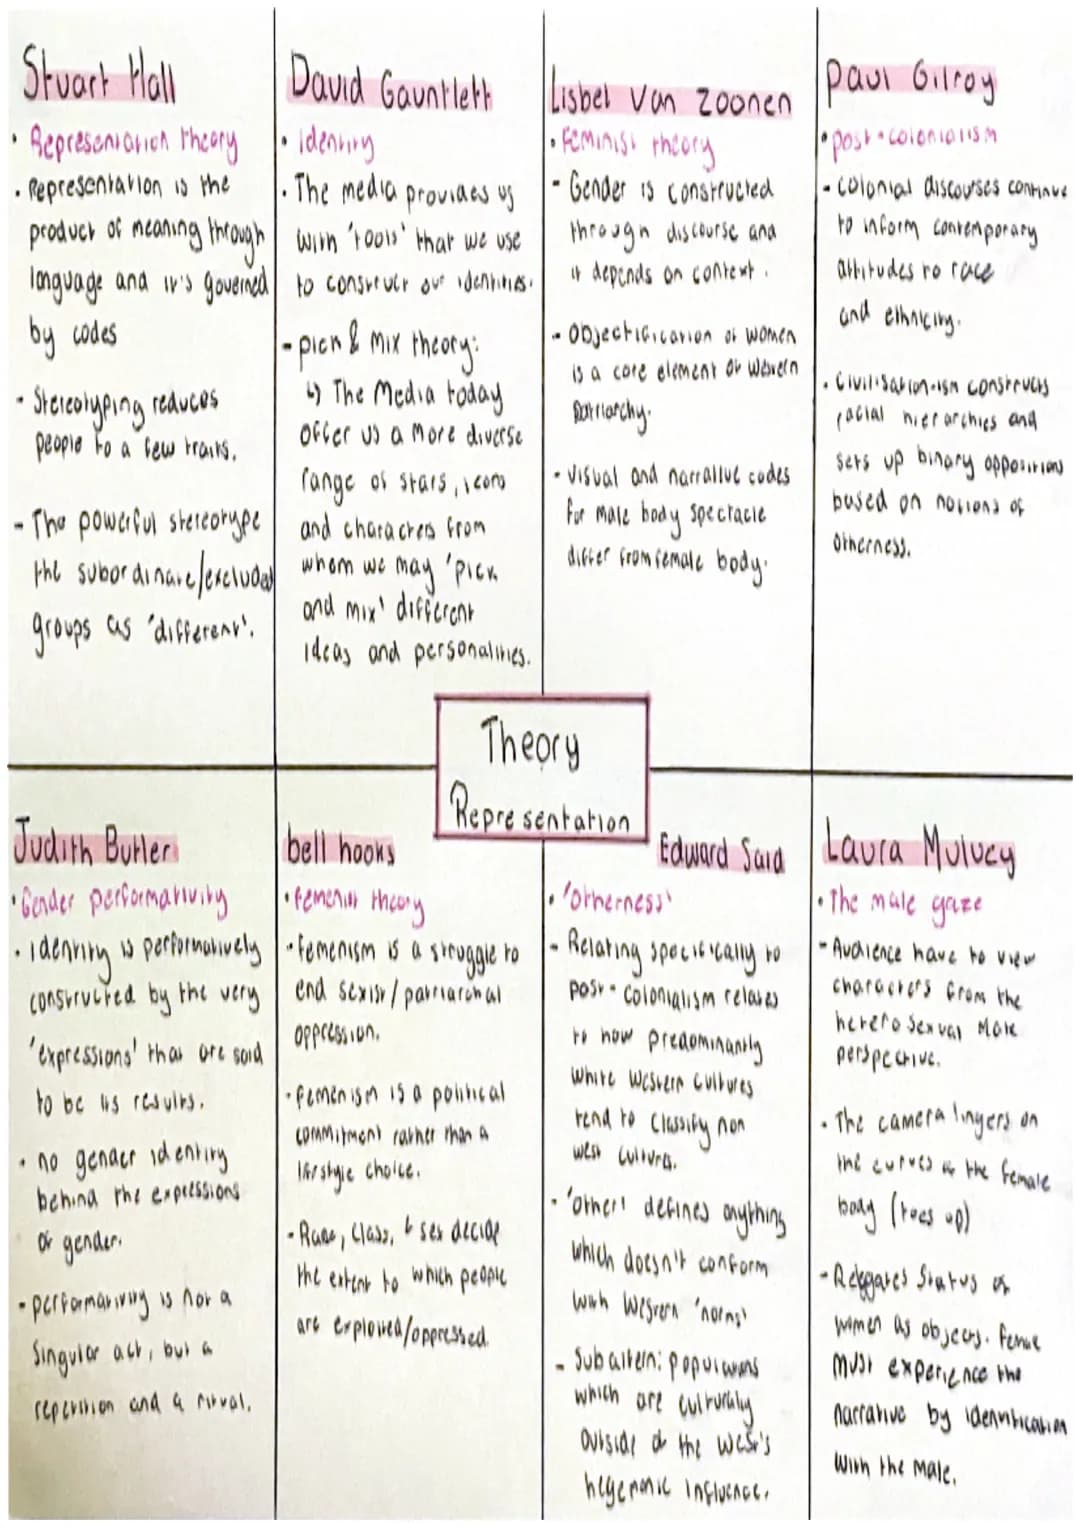 Stuart Hall
• Representation theory
• Representation is the
product of meaning through
language and it's governed
by codes
• Stereotyping reduces
people to a few traits.
- The powerful stereotype
the subordinate/excluded
groups as 'different'.
David Gauntlett
• identity
• The media provides us
with 'tools' that we use
to construct our identities.
- pick & mix theory:
↳ The Media today
offer us a more diverse
range of stars, icons
and characters from
whom we may 'pick
and mix' different
ideas and personalities.
Lisbet Van Zoonen
• Feminist theory
- Gender is constructed
through discourse and
it depends on context.
- Objectification of women
is a core element of western
patriarchy.
- visual and narrative codes
for male body spectacle
differ from female body.
Paul Gilroy
• post-colonialism
- colonial discourses continue
to inform contemporary
attitudes to race
and ethnicity.
• Civilisation-ism constructs
racial hierarchies and
sets up binary oppositions
based on notions of
otherness.
Theory
Representation
Judith Butler
• Gender performativity
• identity is performatively
constructed by the very
'expressions' that are said
to be its results.
• no gender identity
behind the expressions
of gender.
- performativity is not a
singular act, but a
repetition and a ritual.
bell hooks
• femenist theory
• femenism is a struggle to
end sexist/patriarchal
oppression.
• femenism is a political
commitment rather than a
lifestyle choice.
- Race, class, & sex decide
the extent to which people
are exploited/oppressed.
Edward Said
• 'otherness'
- Relating specifically to
post-colonialism relates
to how predominantly
white western cultures
tend to classify non
west cultures.
• 'other' defines anything
which doesn't conform
with Western 'norms'
- Subaltern: populations
which are culturally
outside of the west's
hegemonic influence.
Laura Mulvey
• The male gaze
- Audience have to view
characters from the
heterosexual male
perspective.
• The camera lingers on
the curves of the female
body (toes up)
- Relegates status of
women as objects. Female
must experience the
narrative by identification
with the male.